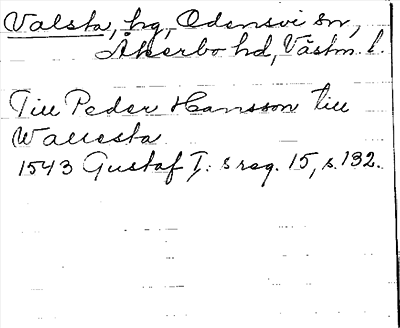 Valsta, hg, Odensvi sn,
Åkerbo hd, Västm. l.
Till Peder Hansson till
Wallesta
1543 Gustaf I: s reg. 15, s. 132.